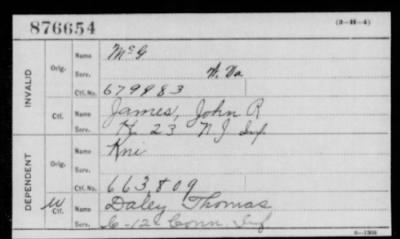 876654
(3-H-4)
INVALID
Orig.
Name McG
Serv. W. Va
Ctf. No. 679983
Ctf.
Name James, John R
Serv. K 23 N J Inf
DEPENDENT
Orig.
Name Kni
Serv.
Ctf. No. 663,809
W Ctf.
Name Daley Thomas
Serv. C-12 Conn Inf